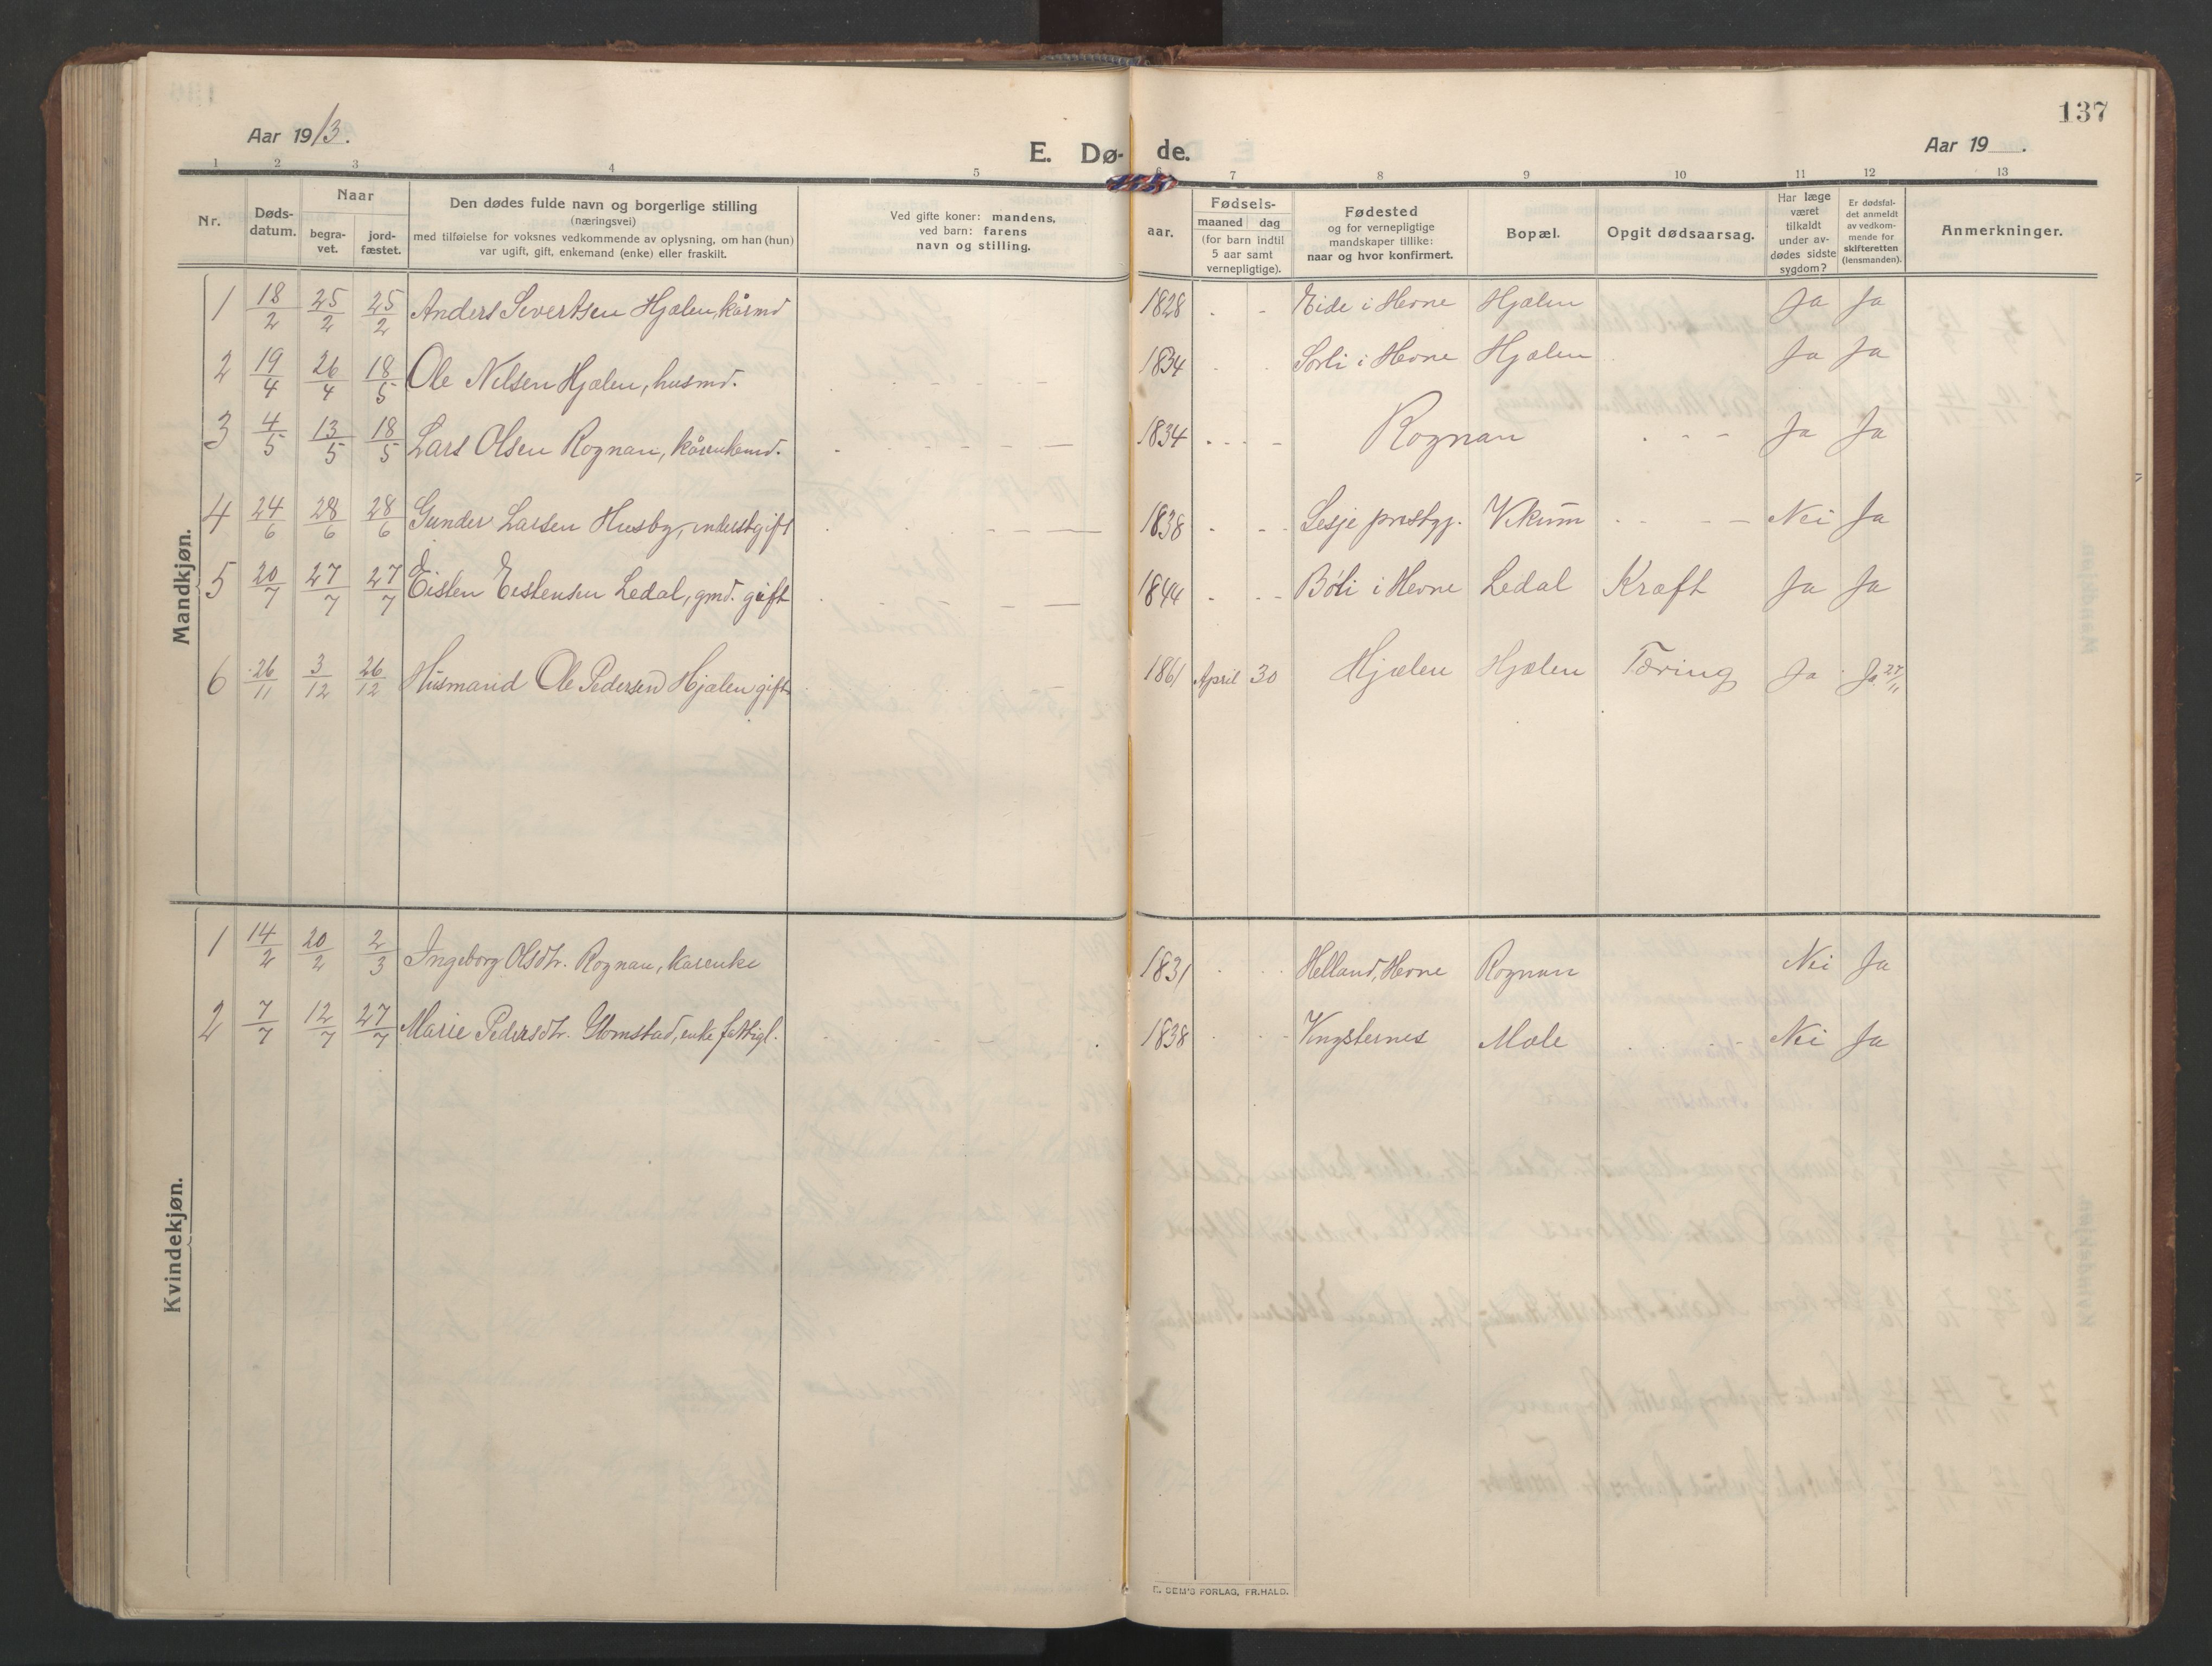 137
Aar 1913.
E. Dø- de.
Aar 19 .
1 2 3 4 5 6 7 8 9 10 11 12 13
Nr.
Døds-
datum.
Naar
begra-
vet.
jord-
fæstet.
Den dødes fulde navn og borgerlige stilling
(næringsvei)
med tilføielse for voksnes vedkommende av oplysning, om han (hun)
var ugift, gift, enkemand (enke) eller fraskilt.
Ved gifte koner: mandens,
ved barn: farens
navn og stilling.
aar.
Fødsels-
maaned dag
(for barn indtil
5 aar samt
vernepligtige).
Fødested
og for vernepligtige
mandskaper tillike:
naar og hvor konfirmert.
Bopæl.
Opgit dødsaarsag.
Har læge
været
tilkaldt
under av-
dødes sidste
sygdom?
Er dødsfal-
det anmeldt
av vedkom-
mende for
skifteretten
(lensmanden).
Anmerkninger.
Mandkjøn.
1 18/2 25/2 25/2 Anders Sivertsen Hjælen, kårmd 1828 Eide i Hevne Hjælen Ja Ja
2 19/4 26/4 18/5 Ole Nilsen Hjælen, husmd. 1834 Sorli i Hevne Hjælen Ja Ja
3 4/5 13/5 18/5 Lars Olsen Rognan, kårenkemd. 1834 Rognan Ja Ja
4 24/6 28/6 28/6 Gunder Larsen Husby, inderst gift 1838 Lesje prestgj. Vikum Nei Ja
5 20/7 27/7 27/7 Eisten Eistensen Ledal, gmd. gift 1844 Bøli i Hevne Ledal Kræft Ja Ja
6 26/11 3/12 26/12 Husmand Ole Pedersen Hjælen gift 1861 April 30 Hjælen Hjælen Tæring Ja Ja 27/11
Kvindekjøn.
1 14/2 20/2 2/3 Ingeborg Olsdtr. Rognan, kårenke 1831 Helland, Hevne Rognan Nei Ja
2 7/7 12/7 27/7 Marie Pedersdtr. Glomstad, enke fattigl. 1838 Vingsternes Mole Nei Ja
E. SEM'S FORLAG, FR.HALD.